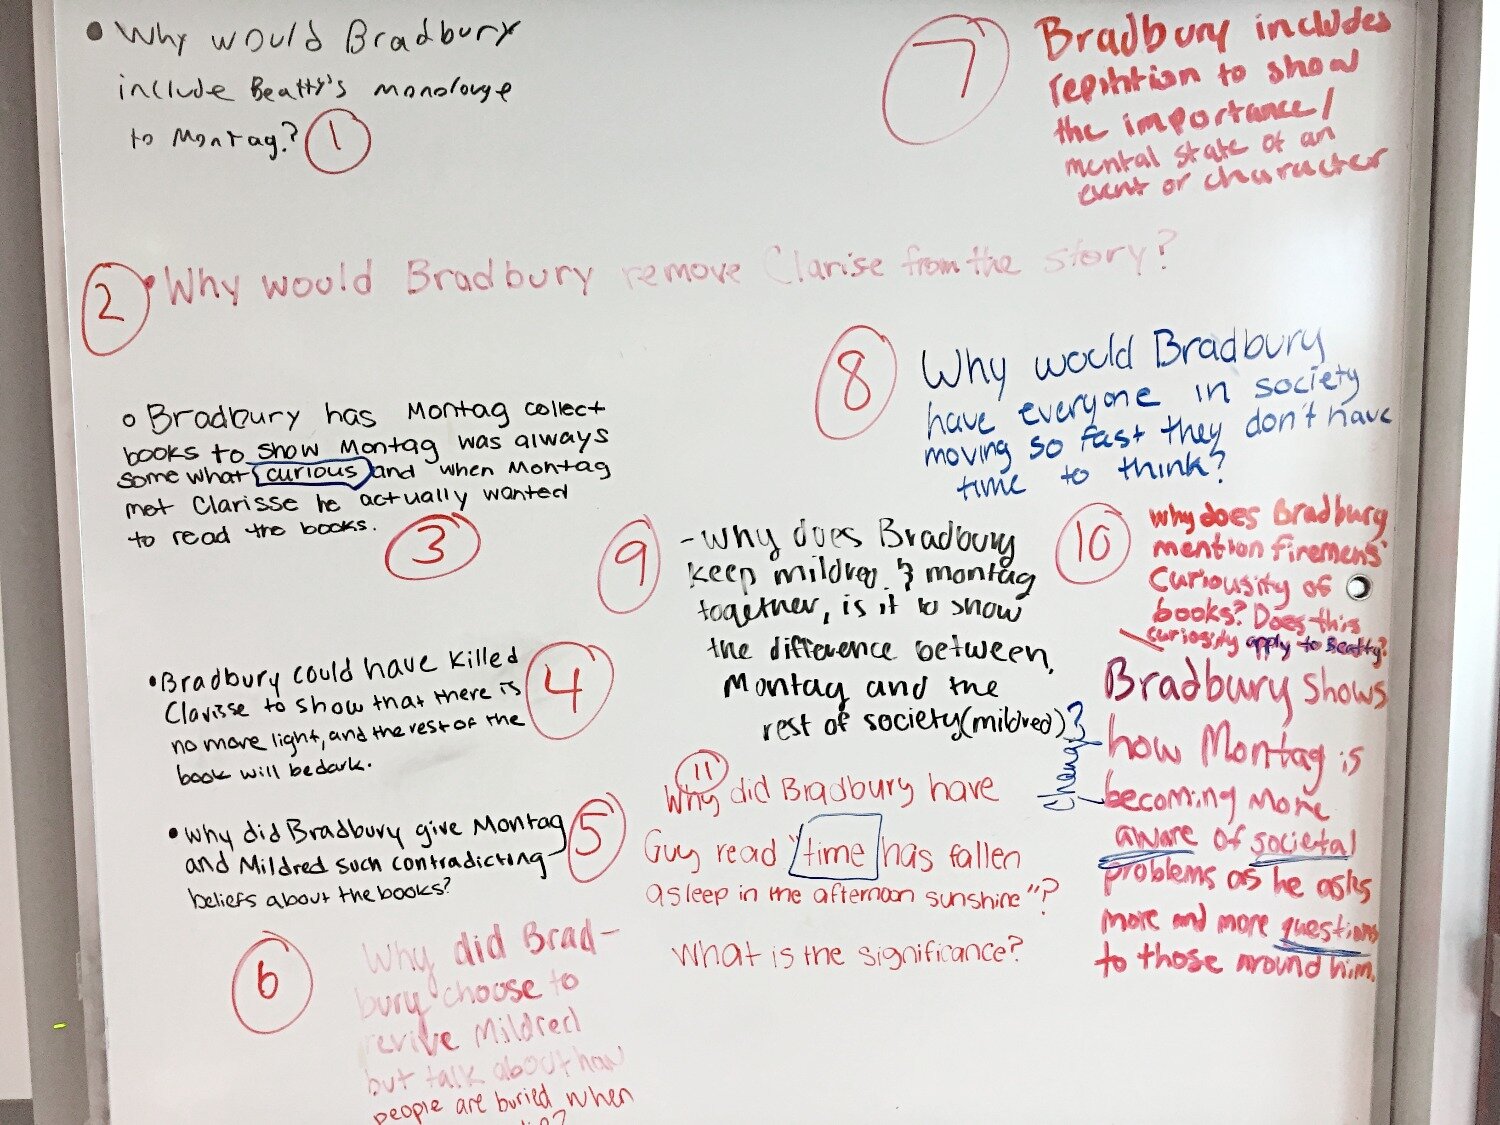 • Why would Bradbury
include Beatty's monolouge
to Montag? 1
2 • Why would Bradbury remove Clarise from the story?
o Bradbury has Montag collect
books to show Montag was always
some what curious and when Montag
met Clarisse he actually wanted
to read the books. 3
• Bradbury could have killed
Clarisse to show that there is
no more light, and the rest of the
book will be dark. 4
• Why did Bradbury give Montag
and Mildred such contradicting
beliefs about the books? 5
6 Why did Brad-
bury choose to
revive Mildred
but talk about how
people are buried when
7 Bradbury includes
repitition to show
the importance/
mental state of an
event or character
8 Why would Bradbury
have everyone in society
moving so fast they don't have
time to think?
9 - Why does Bradbury
keep mildred & montag
together, is it to show
the difference between,
Montag and the
rest of society (mildred)?
10 Why does Bradbury
mention firemens'
Curiousity of
books? Does this
curiosity apply to Beatty?
Bradbury shows
how Montag is
becoming more
aware of societal
problems as he asks
more and more questions
to those around him.
Change
11
Why did Bradbury have
Guy read "time has fallen
asleep in the afternoon sunshine"?
What is the significance?